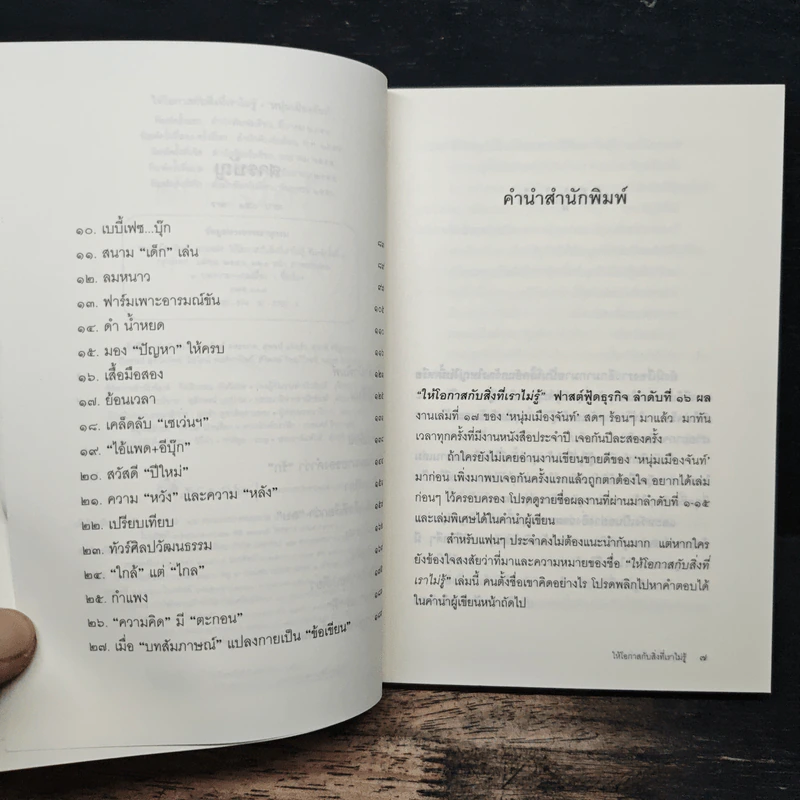 ๑๐. เบบี้เฟซ...บุ๊ก
๑๑. สนาม “เด็ก” เล่น
๑๒. ลมหนาว
๑๓. ฟาร์มเพาะอารมณ์ขัน
๑๔. ดำ น้ำหยด
๑๕. มอง “ปัญหา” ให้ครบ
๑๖. เสื้อมือสอง
๑๗. ย้อนเวลา
๑๘. เคล็ดลับ “เซเว่นฯ”
๑๙. “ไอ้แพด+อีบุ๊ก”
๒๐. สวัสดี “ปีใหม่”
๒๑. ความ “หวัง” และความ “หลัง”
๒๒. เปรียบเทียบ
๒๓. ทัวร์ศิลปวัฒนธรรม
๒๔. “ใกล้” แต่ “ไกล”
๒๕. กำแพง
๒๖. “ความคิด” มี “ตะกอน”
๒๗. เมื่อ “บทสัมภาษณ์” แปลงกายเป็น “ข้อเขียน”
คำนำสำนักพิมพ์
“ให้โอกาสกับสิ่งที่เราไม่รู้” ฟาสต์ฟู้ดธุรกิจ ลำดับที่ ๑๖ ผล
งานเล่มที่ ๑๗ ของ ‘หนุ่มเมืองจันท์’ สดๆ ร้อนๆ มาแล้ว มาทัน
เวลาทุกครั้งที่มีงานหนังสือประจำปี เจอกันปีละสองครั้ง
ถ้าใครยังไม่เคยอ่านงานเขียนขายดีของ ‘หนุ่มเมืองจันท์’
มาก่อน เพิ่งมาพบเจอกันครั้งแรกแล้วถูกตาต้องใจ อยากได้เล่ม
ก่อนๆ ไว้ครอบครอง โปรดดูรายชื่อผลงานที่ผ่านมาลำดับที่ ๑-๑๕
และเล่มพิเศษได้ในคำนำผู้เขียน
สำหรับแฟนๆ ประจำคงไม่ต้องแนะนำกันมาก แต่หากใคร
ยังข้องใจสงสัยว่าที่มาและความหมายของชื่อ “ให้โอกาสกับสิ่งที่
เราไม่รู้” เล่มนี้ คนตั้งชื่อเขาคิดอย่างไร โปรดพลิกไปหาคำตอบได้
ในคำนำผู้เขียนหน้าถัดไป
ให้โอกาสกับสิ่งที่เราไม่รู้ ๗